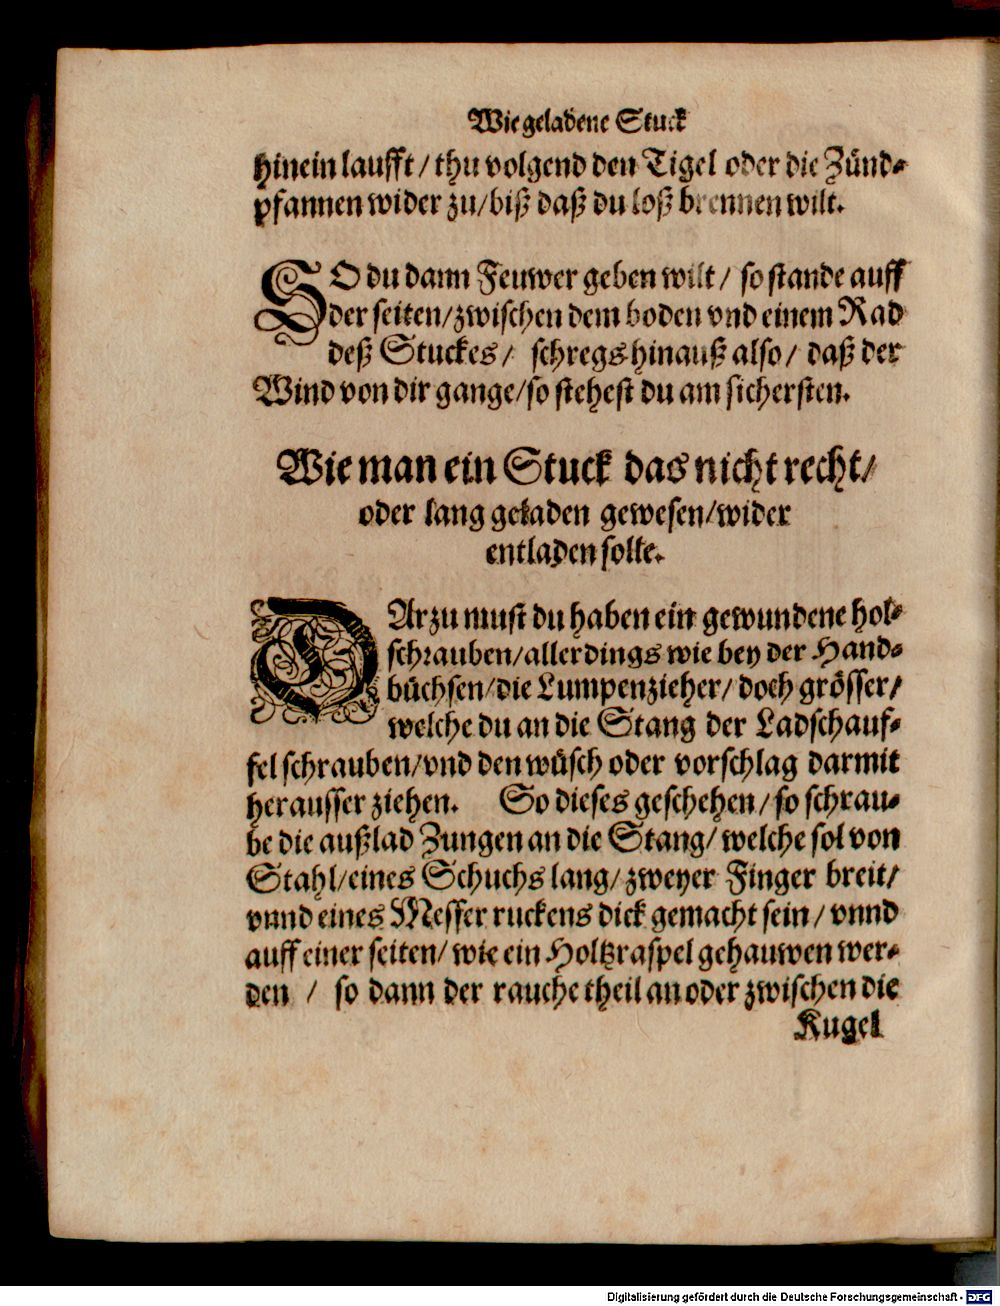 Wie geladene Stuck
hinein laufft / thu volgend den Tigel oder die Zünd-
pfannen wider zu / biß daß du loß brennen wilt.
SO du dann Feuwer geben wilt / so stande auff
der seiten / zwischen dem boden vnd einem Rad
deß Stuckes / schregs hinauß also / daß der
Wind von dir gange / so stehest du am sichersten.
Wie man ein Stuck das nicht recht /
oder lang geladen gewesen / wider
entladen solle.
DArzu must du haben ein gewundene hol-
schrauben / allerdings wie bey der Hand-
büchsen / die Lumpenzieher / doch grösser /
welche du an die Stang der Ladschauf-
fel schrauben / vnd den wüsch oder vorschlag darmit
herausser ziehen. So dieses geschehen / so schrau-
be die außlad Zungen an die Stang / welche sol von
Stahl / eines Schuchs lang / zweyer Finger breit /
vnnd eines Messer ruckens dick gemacht sein / vnnd
auff einer seiten / wie ein Holtzraspel gehauwen wer-
den / so dann der rauche theil an oder zwischen die
Kugel
Digitalisierung gefördert durch die Deutsche Forschungsgemeinschaft - DFG